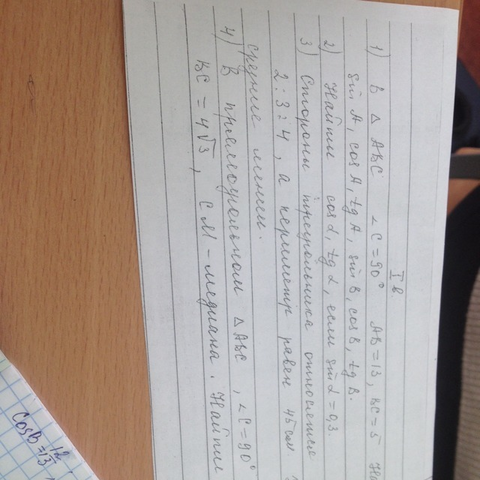 I в
1) В △ ABC ∠C=90° AB=13, BC=5
sin A, cos A, tg A, sin B, cos B, tg B.
2) Найти cos α, tg α, если sin α = 0,3
3) Стороны треугольника относятся
2:3:4, а периметр равен 45 см
средние линии.
4) В прямоугольном △ABC, ∠C=90°
BC = 4√3, CM - медиана. Найти
cos B = 12/13